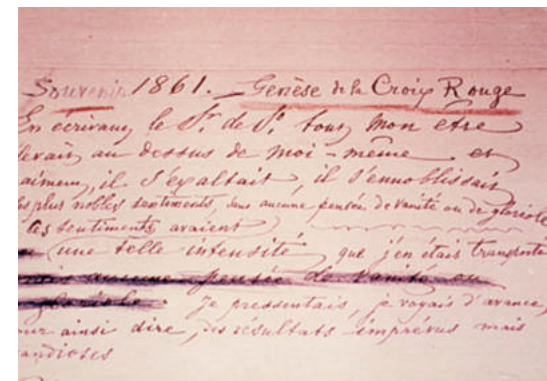 Souvenir 1861. Genèse de la Croix Rouge
En écrivant le Sr. de So. tout mon être
levait au dessus de moi-même et
aiment, il s'exaltait, il s'ennoblissait
les plus nobles sentiments, sans aucune pensée de vanité ou de gloriole
les sentiments avaient
une telle intensité que j'en étais transporté
aucune pensée de vanité ou
gloriole. Je pressentais, je voyais d'avance,
our ainsi dire, des résultats imprévus mais
andioses